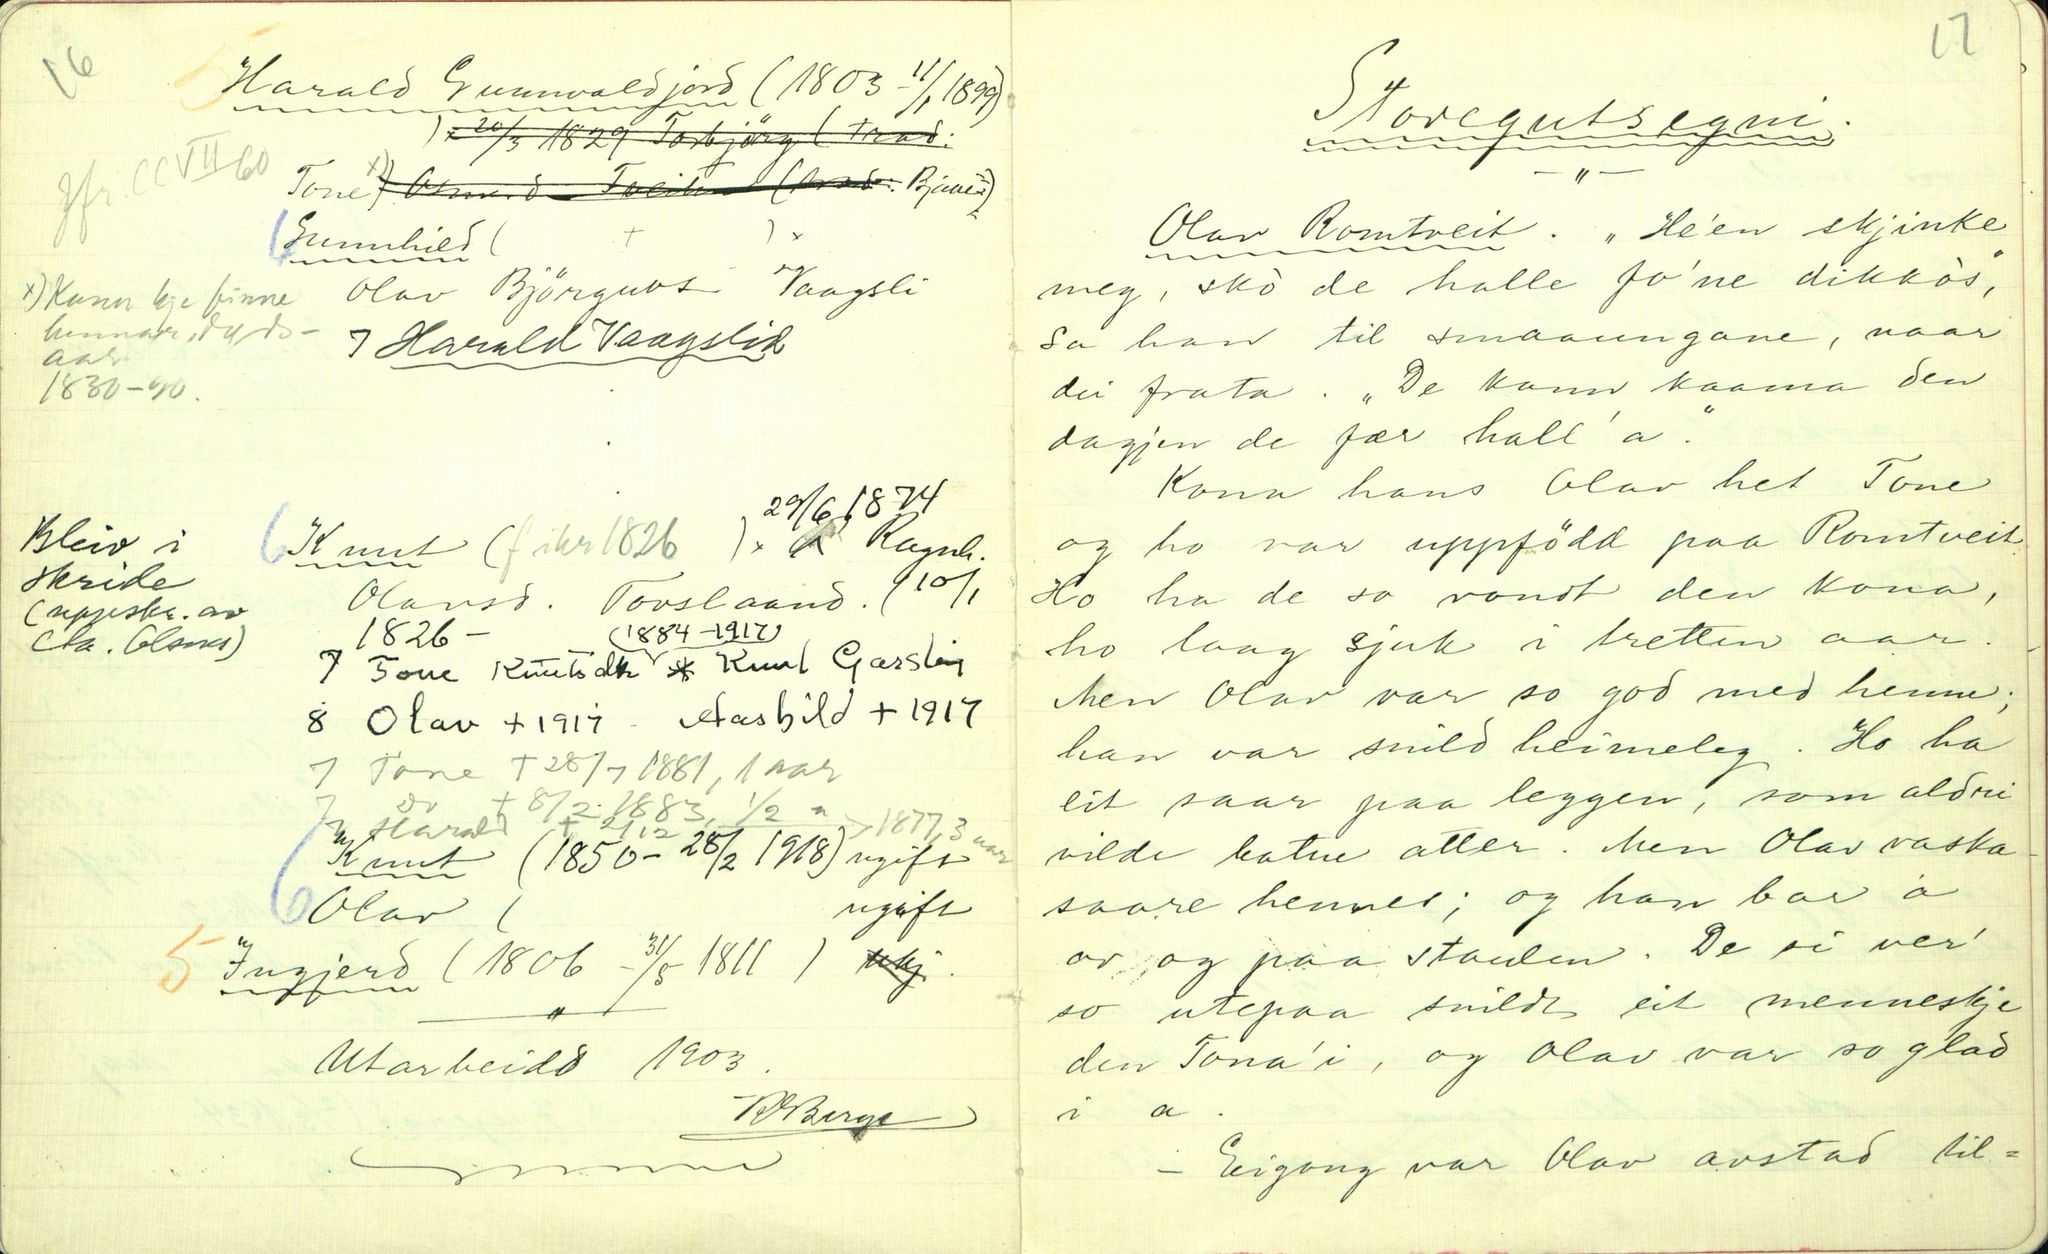 16
Harald Gunnvaldjord (1803 - 11/1 1899)
)x 20/3 1829 Torbjörg (
Tone x)
Gunnhild ( + ) x
Olav Björguvs Vaagsli
7 Harald Vaagslid
Jfr. CC VII 60
x) Kann kje finne
hennar, døds-
aar
1830-90.
Bleiv i
skride
(uppskr. av
6 Knut (f ikr 1826 ) x 29/6 1874 Ragnh.
Olavsd. Tovslaand. (10/1
1826 - (1884-1917)
7 Tone Knutsdtr * Knut Garsli
8 Olav + 1917 - Aashild + 1917
7 Tone + 28/7 1881, 1 aar
7 Do + 8/2 1883, 1/2 "
7 Harald + 2/12 1877, 3 aar
6 Knut (1850 - 28/2 1918) ugift
Olav ( ugift
5 Ingjerd (1806 - 31/8 1811 ) ukj.
"
Utarbeidd 1903.
RBerge
17
Storegutsegni.
- " -
Olav Romtveit. "He'en skjinke
meg, skò de halle fo'ne dikkòs",
sa han til smaaungane, naar
dei frata. "De kann kaama den
dagjen de fær hall'a."
Kona hans Olav het Tone
og ho var uppfödd paa Romtveit
Ho ha de so vondt den kona,
ho laag sjuk i tretten aar.
Men Olav var so god med henne;
han var snild heimeleg. Ho ha
eit saar paa leggen, som aldri
vilde batne atter. Men Olav vaska
saare hennes; og han bar a
av og paa staulen. De si ver'
so utepaa snildt eit menneskje
den Tona'i, og Olav var so glad
i a.
- Eigong var Olav avstad til=